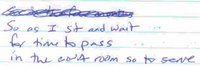 So as I sit and wait
for time to pass
in the court room so to serve